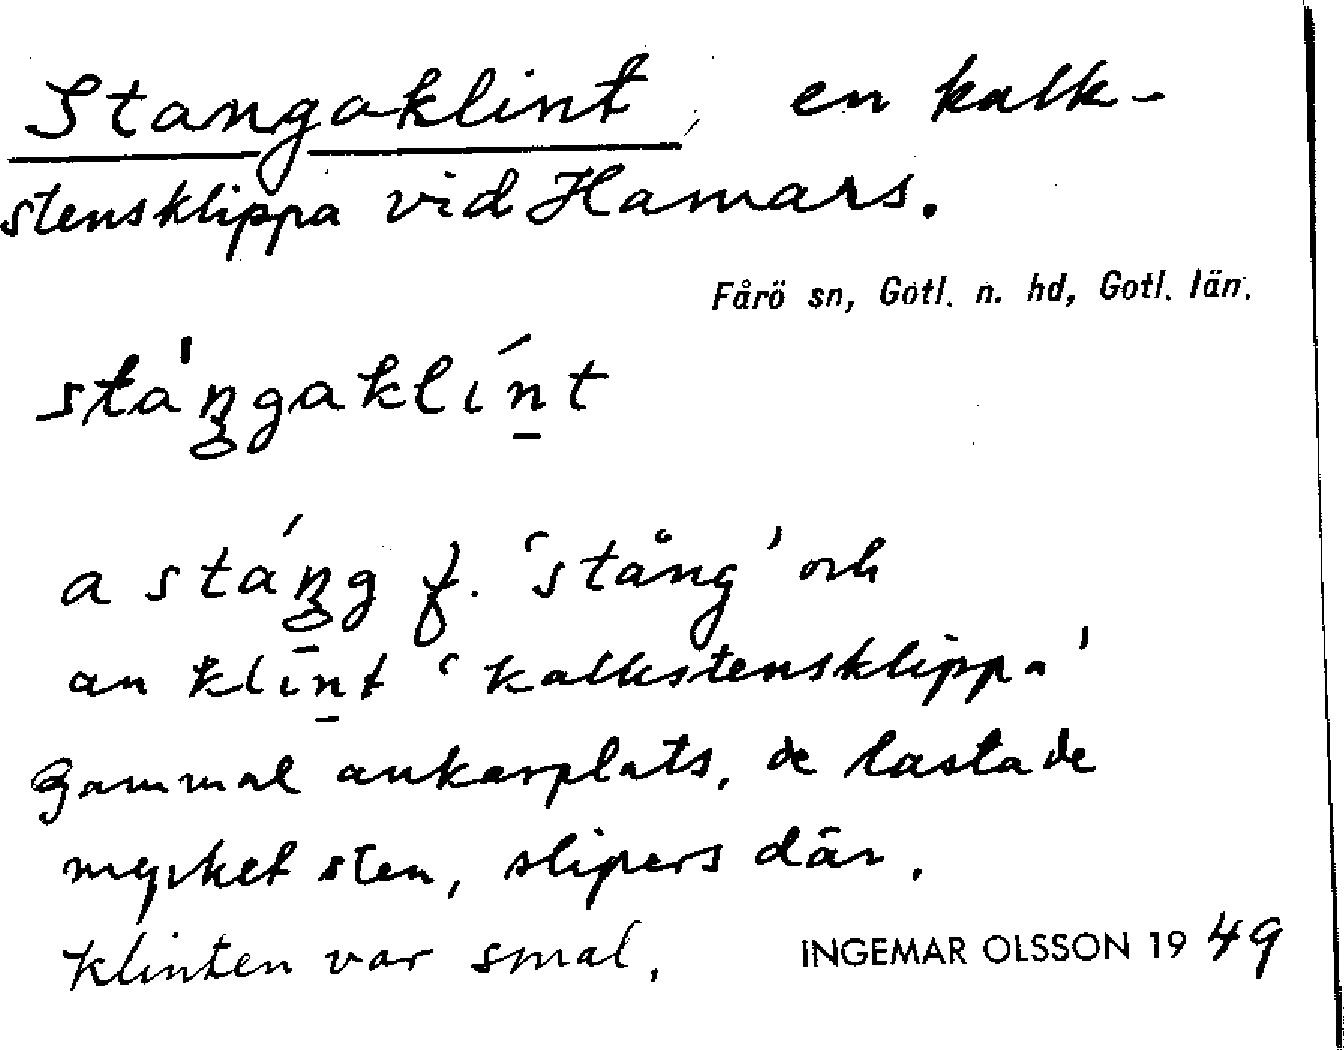 Stangaklint, en kalk-
stensklippa vid Hamars.
Fårö sn, Gotl. n. hd, Gotl. län.
stáŋgaklínt
a stáŋg f. 'stång' och
an klint 'kalkstensklippa'
Gammal ankarplats, de lastade
mycket sten, slipers där.
klinten var smal.
INGEMAR OLSSON 1949